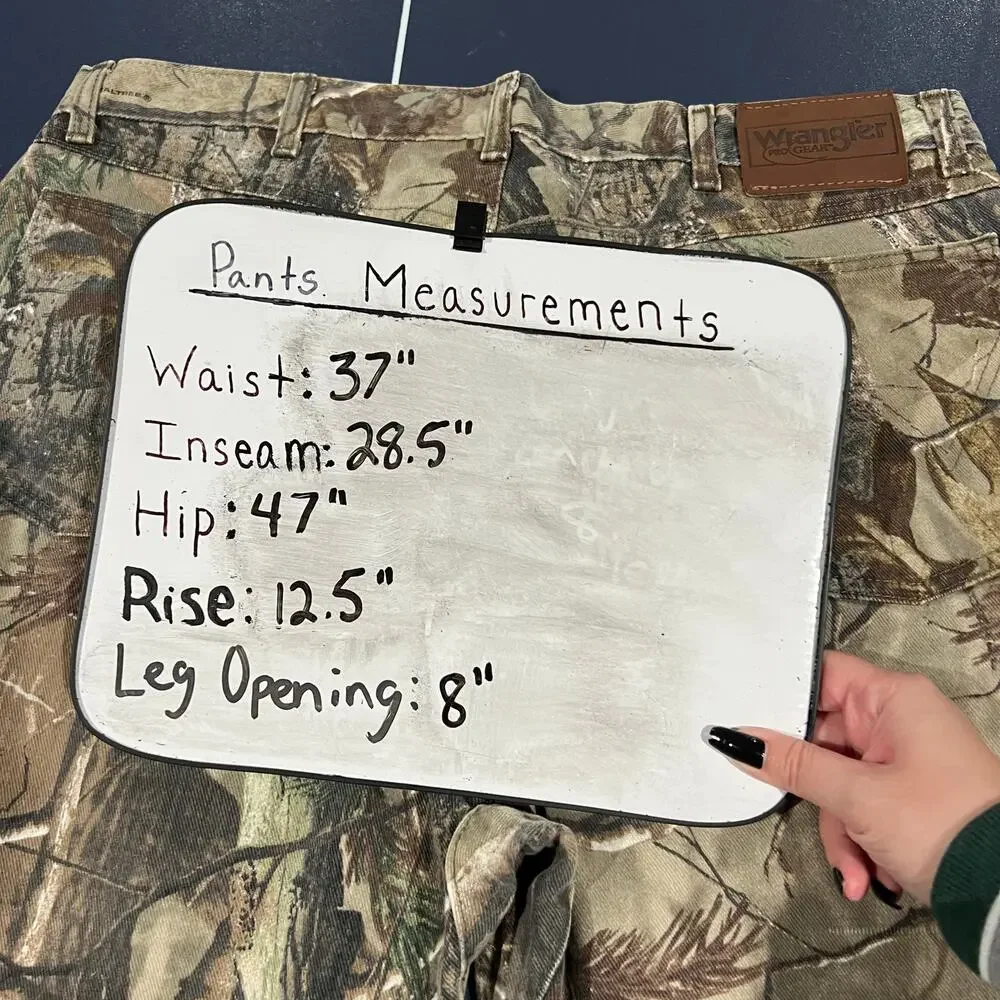 ALTREE®
Wrangler
PRO GEAR
Pants Measurements
Waist: 37"
Inseam: 28.5"
Hip: 47"
Rise: 12.5"
Leg Opening: 8"